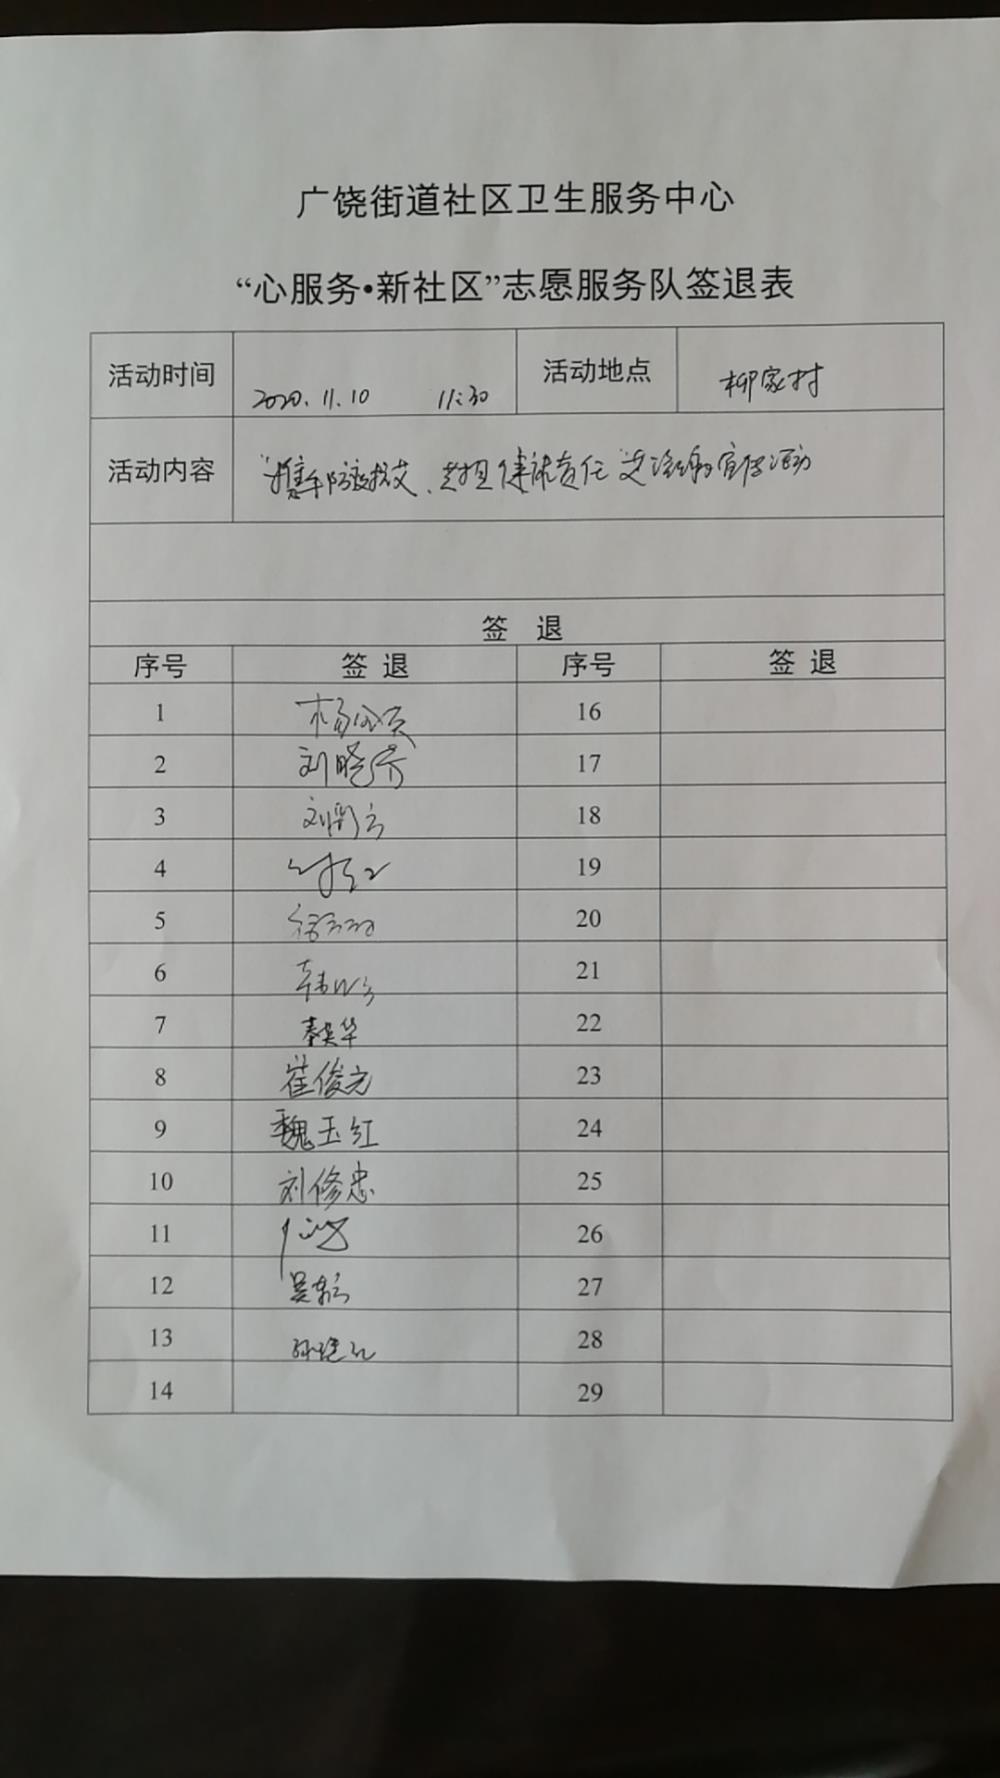 广饶街道社区卫生服务中心
“心服务•新社区”志愿服务队签退表
活动时间 2020.11.10 11:30 活动地点 柳家村
活动内容 “携手防疫抗艾、共担健康责任”艾滋病宣传活动
签 退
序号 签 退 序号 签 退
1 16
2 刘晓芳 17
3 18
4 19
5 20
6 21
7 秦英华 22
8 崔俊元 23
9 魏玉红 24
10 刘修忠 25
11 26
12 27
13 28
14 29